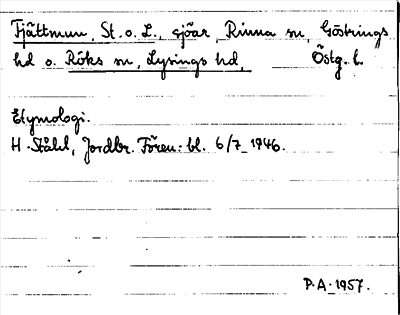 Fjättmun, St. o. L., sjöar, Rinna sn, Göstrings
hd o. Röks sn, Lysings hd, Östg. l.
Etymologi.
H. Ståhl, Jordbr. Fören: bl. 6/7 1946.
P.A. 1957.